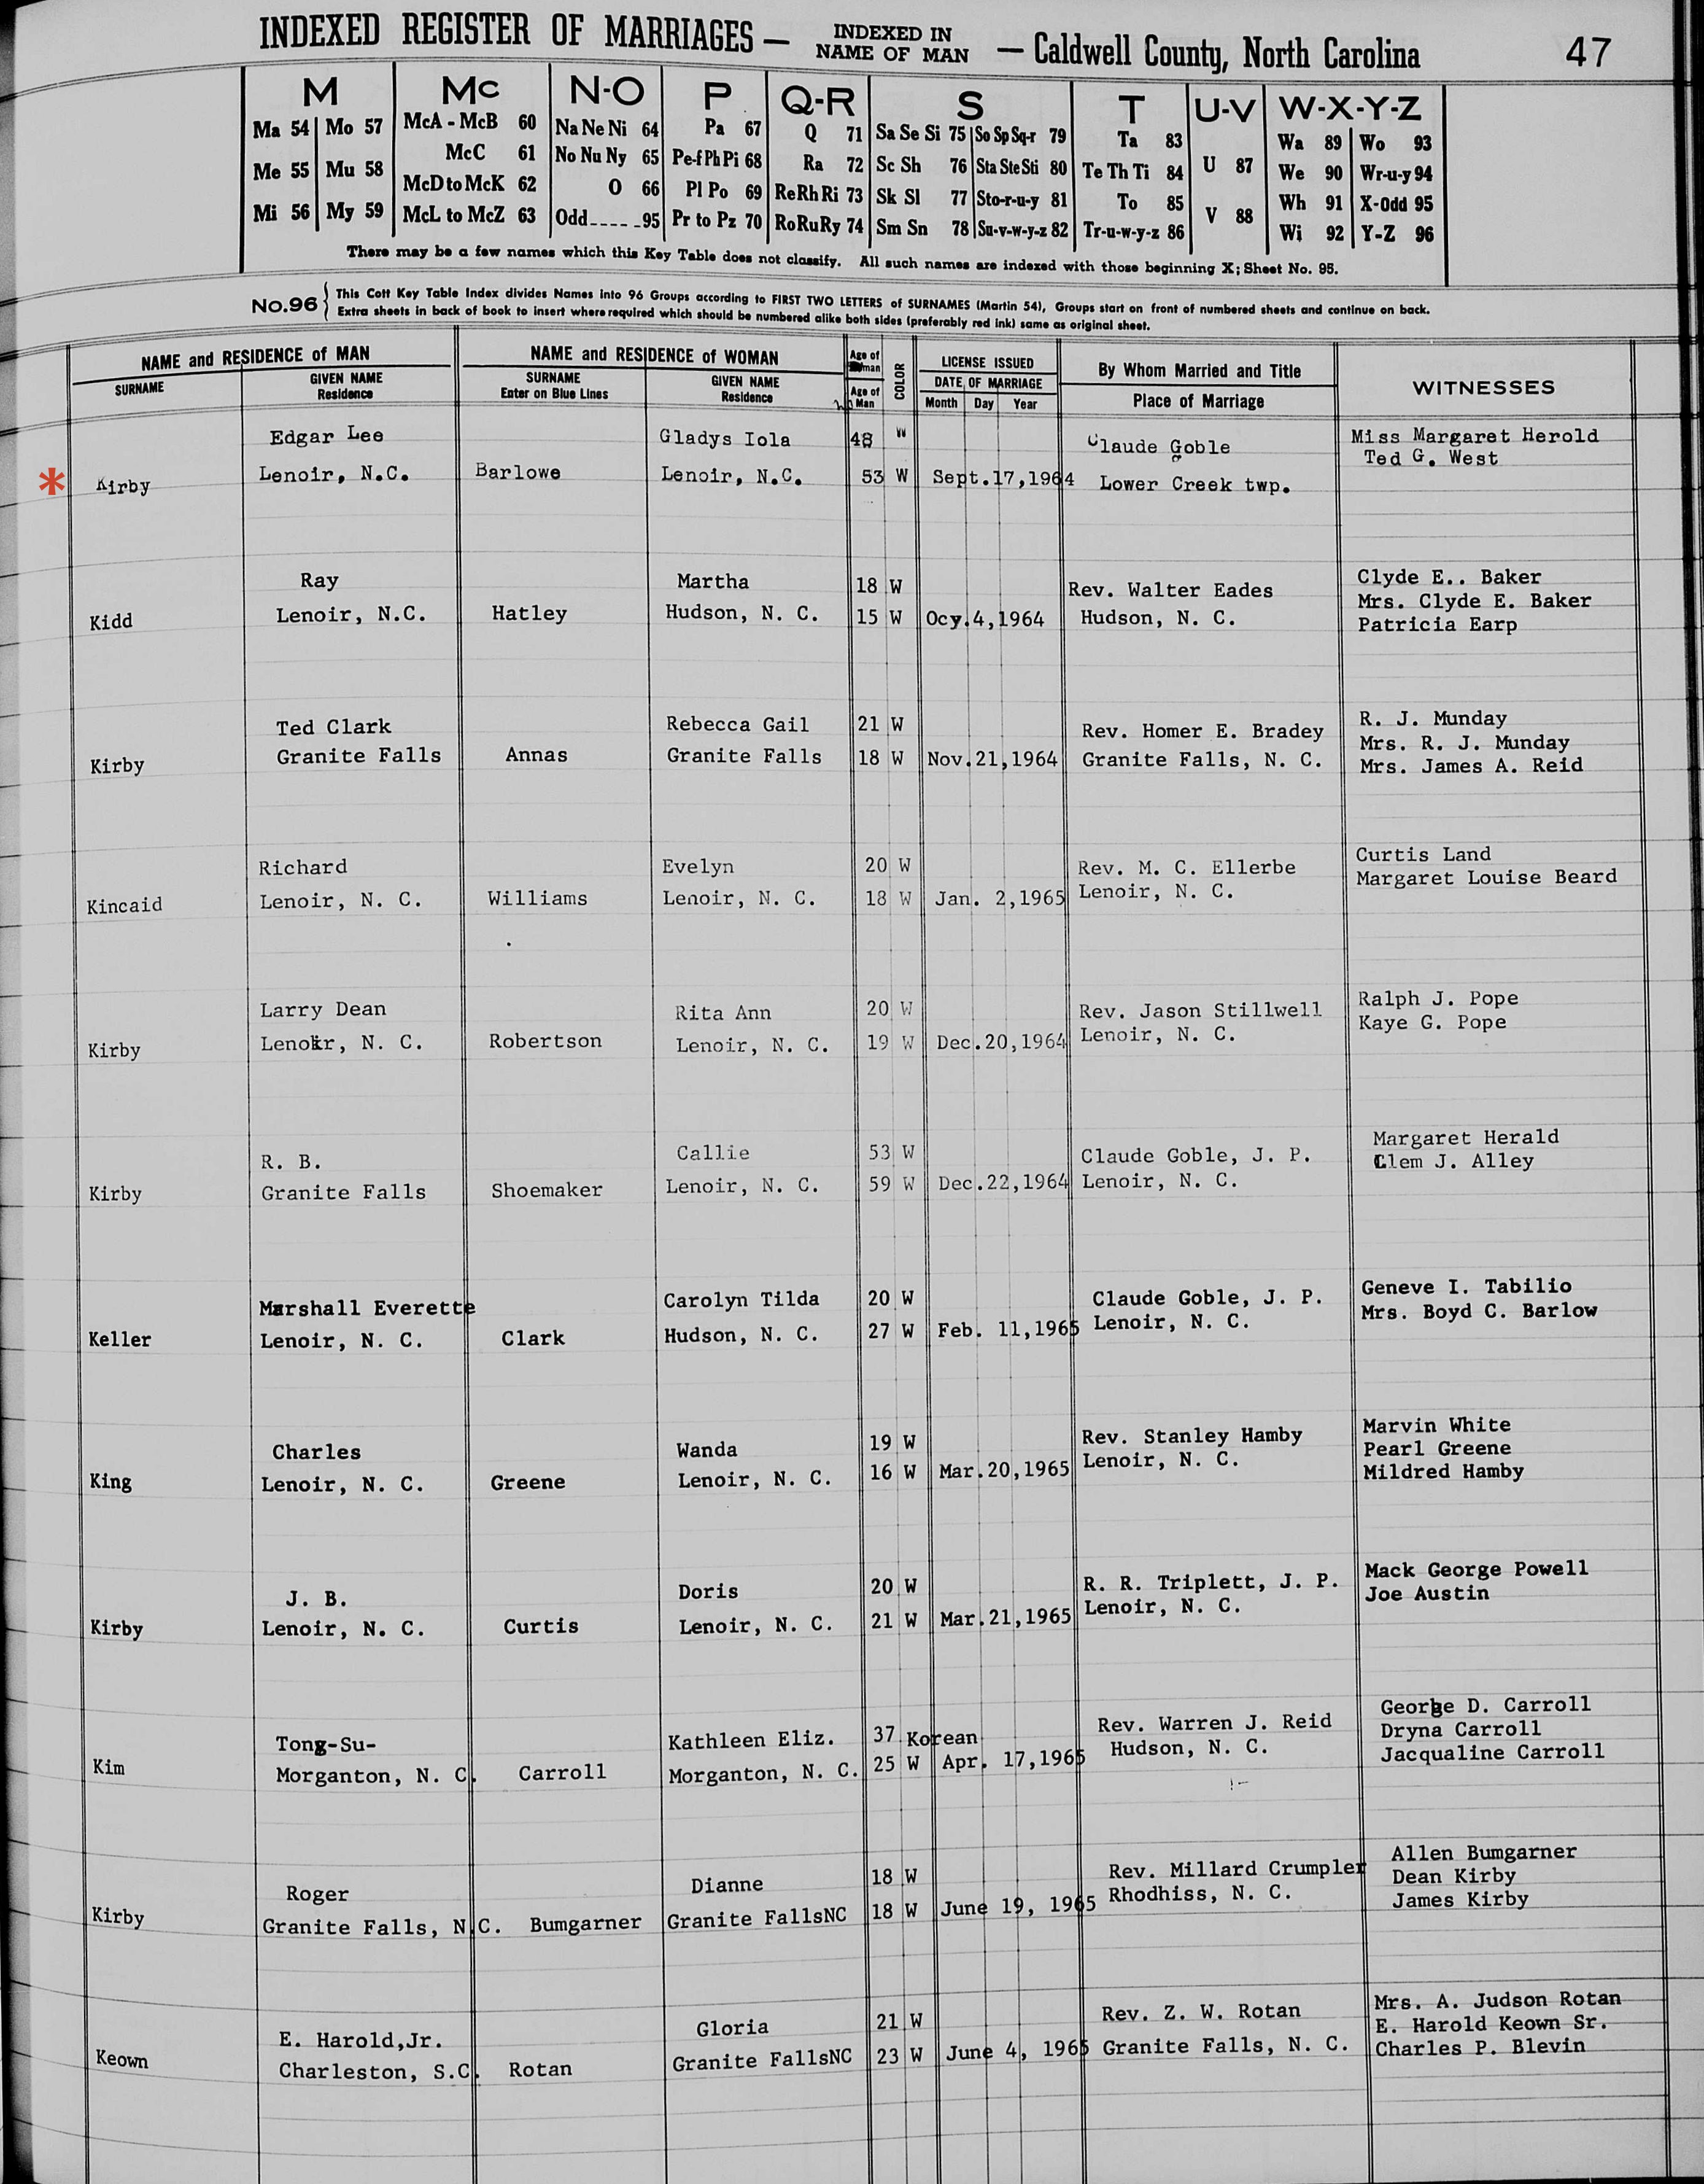 INDEXED REGISTER OF MARRIAGES — INDEXED IN NAME OF MAN — Caldwell County, North Carolina 47
M Mc N-O P Q-R S T U-V W-X-Y-Z
Ma 54 Mo 57 McA - McB 60 Na Ne Ni 64 Pa 67 Q 71 Sa Se Si 75 So Sp Sq-r 79 Ta 83 Wa 89 Wo 93
Me 55 Mu 58 McC 61 No Nu Ny 65 Pe-f Ph Pi 68 Ra 72 Sc Sh 76 Sta Ste Sti 80 Te Th Ti 84 U 87 We 90 Wr-u-y 94
McD to McK 62 O 66 Pl Po 69 Re Rh Ri 73 Sk Sl 77 Sto-r-u-y 81 To 85 Wh 91 X-Odd 95
Mi 56 My 59 McL to McZ 63 Odd-----95 Pr to Pz 70 Ro Ru Ry 74 Sm Sn 78 Su-v-w-y-z 82 Tr-u-w-y-z 86 V 88 Wi 92 Y-Z 96
There may be a few names which this Key Table does not classify. All such names are indexed with those beginning X; Sheet No. 95.
No. 96 { This Cott Key Table Index divides Names into 96 Groups according to FIRST TWO LETTERS of SURNAMES (Martin 54), Groups start on front of numbered sheets and continue on back.
Extra sheets in back of book to insert where required which should be numbered alike both sides (preferably red ink) same as original sheet.
NAME and RESIDENCE of MAN NAME and RESIDENCE of WOMAN Age of man COLOR LICENSE ISSUED By Whom Married and Title WITNESSES
SURNAME GIVEN NAME Residence SURNAME Enter on Blue Lines GIVEN NAME Residence Age of Man DATE OF MARRIAGE Place of Marriage
Month Day Year
Edgar Lee Gladys Iola 48 W Claude Goble Miss Margaret Herold
Ted G. West
* Kirby Lenoir, N.C. Barlowe Lenoir, N.C. 53 W Sept.17,1964 Lower Creek twp.
Ray Martha 18 W Rev. Walter Eades Clyde E.. Baker
Mrs. Clyde E. Baker
Kidd Lenoir, N.C. Hatley Hudson, N. C. 15 W Ocy.4,1964 Hudson, N. C. Patricia Earp
Ted Clark Rebecca Gail 21 W Rev. Homer E. Bradey R. J. Munday
Mrs. R. J. Munday
Kirby Granite Falls Annas Granite Falls 18 W Nov.21,1964 Granite Falls, N. C. Mrs. James A. Reid
Richard Evelyn 20 W Rev. M. C. Ellerbe Curtis Land
Kincaid Lenoir, N. C. Williams Lenoir, N. C. 18 W Jan. 2,1965 Lenoir, N. C. Margaret Louise Beard
Larry Dean Rita Ann 20 W Rev. Jason Stillwell Ralph J. Pope
Kirby Lenoir, N. C. Robertson Lenoir, N. C. 19 W Dec.20,1964 Lenoir, N. C. Kaye G. Pope
R. B. Callie 53 W Claude Goble, J. P. Margaret Herald
Kirby Granite Falls Shoemaker Lenoir, N. C. 59 W Dec.22,1964 Lenoir, N. C. Clem J. Alley
Marshall Everette Carolyn Tilda 20 W Claude Goble, J. P. Geneve I. Tabilio
Keller Lenoir, N. C. Clark Hudson, N. C. 27 W Feb. 11,1965 Lenoir, N. C. Mrs. Boyd C. Barlow
Charles Wanda 19 W Rev. Stanley Hamby Marvin White
Pearl Greene
King Lenoir, N. C. Greene Lenoir, N. C. 16 W Mar.20,1965 Lenoir, N. C. Mildred Hamby
J. B. Doris 20 W R. R. Triplett, J. P. Mack George Powell
Kirby Lenoir, N. C. Curtis Lenoir, N. C. 21 W Mar.21,1965 Lenoir, N. C. Joe Austin
Tong-Su- Kathleen Eliz. 37 Korean Rev. Warren J. Reid George D. Carroll
Dryna Carroll
Kim Morganton, N. C. Carroll Morganton, N. C. 25 W Apr. 17,1965 Hudson, N. C. Jacqualine Carroll
Roger Dianne 18 W Rev. Millard Crumpler Allen Bumgarner
Dean Kirby
Kirby Granite Falls, N.C. Bumgarner Granite FallsNC 18 W June 19, 1965 Rhodhiss, N. C. James Kirby
E. Harold,Jr. Gloria 21 W Rev. Z. W. Rotan Mrs. A. Judson Rotan
E. Harold Keown Sr.
Keown Charleston, S.C. Rotan Granite FallsNC 23 W June 4, 1965 Granite Falls, N. C. Charles P. Blevin